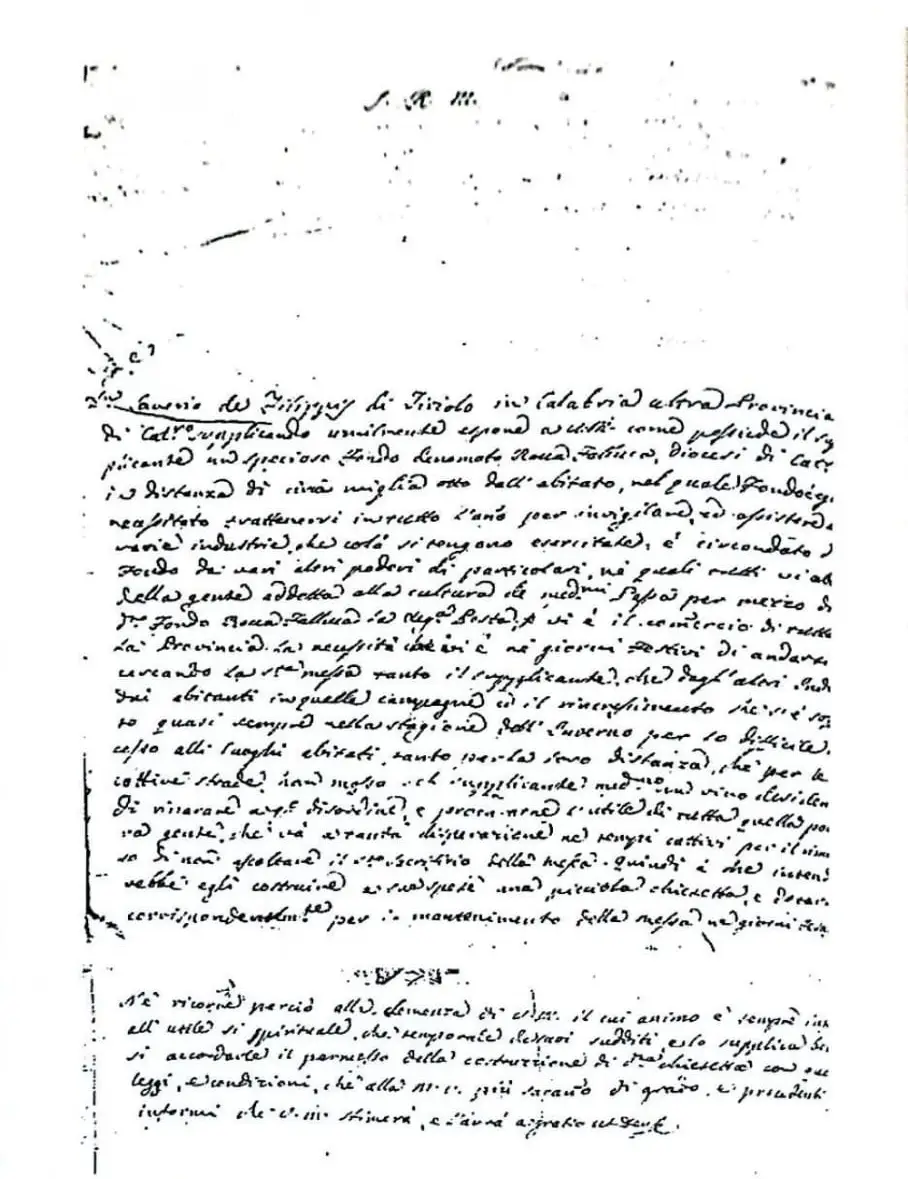 S. R. M.
Saverio de Filippis di Tiriolo in Calabria ultra Provincia
di Cat.ro supplicando umilmente espone a V.M. come possiede il sup
plicante un specioso Fondo denomato Rocca Fallucca, Diocesi di Cat
in distanza di circa miglia otto dall'abitato, nel quale Fondo è
necessitato trattenersi in tutto l'año per invigilare, ed assistere a
varie industrie, che colà si tengono esercitate, è circondato
Fondo da vari altri poderi di particolari, ne quali tutti vi ab
della gente addetta alla cultura de med.mi Passa per mezzo di
d.o Fondo Rocca Fallucca la Reg.a Posta, e vi è il comercio di tutta
la Provincia. La necessità è ne giorni Festivi di andarsi
cercando la S.ta messa tanto il supplicante, che degl'altri
abitanti in quelle campagne ed il rincrescimento che si è
to quasi sempre nella stagione dell'Inverno per lo difficile
cesso alli luoghi abitati, tanto per la loro distanza, che per le
cattive strade, han mosso nel supplicante med.mo un vivo desiden
di riparare a q.to disordine, e procurarne l'utile di tutta quella pove
ra gente, che va a tanta disperazione ne tempi cattivi per il rimo
so di non ascoltare il S.to Sacrificio della Messa. Quindi è che inten
rebbe egli costruire a sue spese una picciola chiesetta, e dotar
corrispondentem.te per il mantenimento della messa ne giorni
Ne ricorre perciò alla clemenza di V.M. il cui animo è sempre int
all'utile sì spirituale, che temporale de suoi sudditi e lo supplica
si accordarle il permesso della costruzione di d.ta chiesetta con que
leggi, e condizioni, che alla M.V. più sarano di grado, e precedenti
informi che V.M. stimerà, e l'avrà a grazia ut Deus.